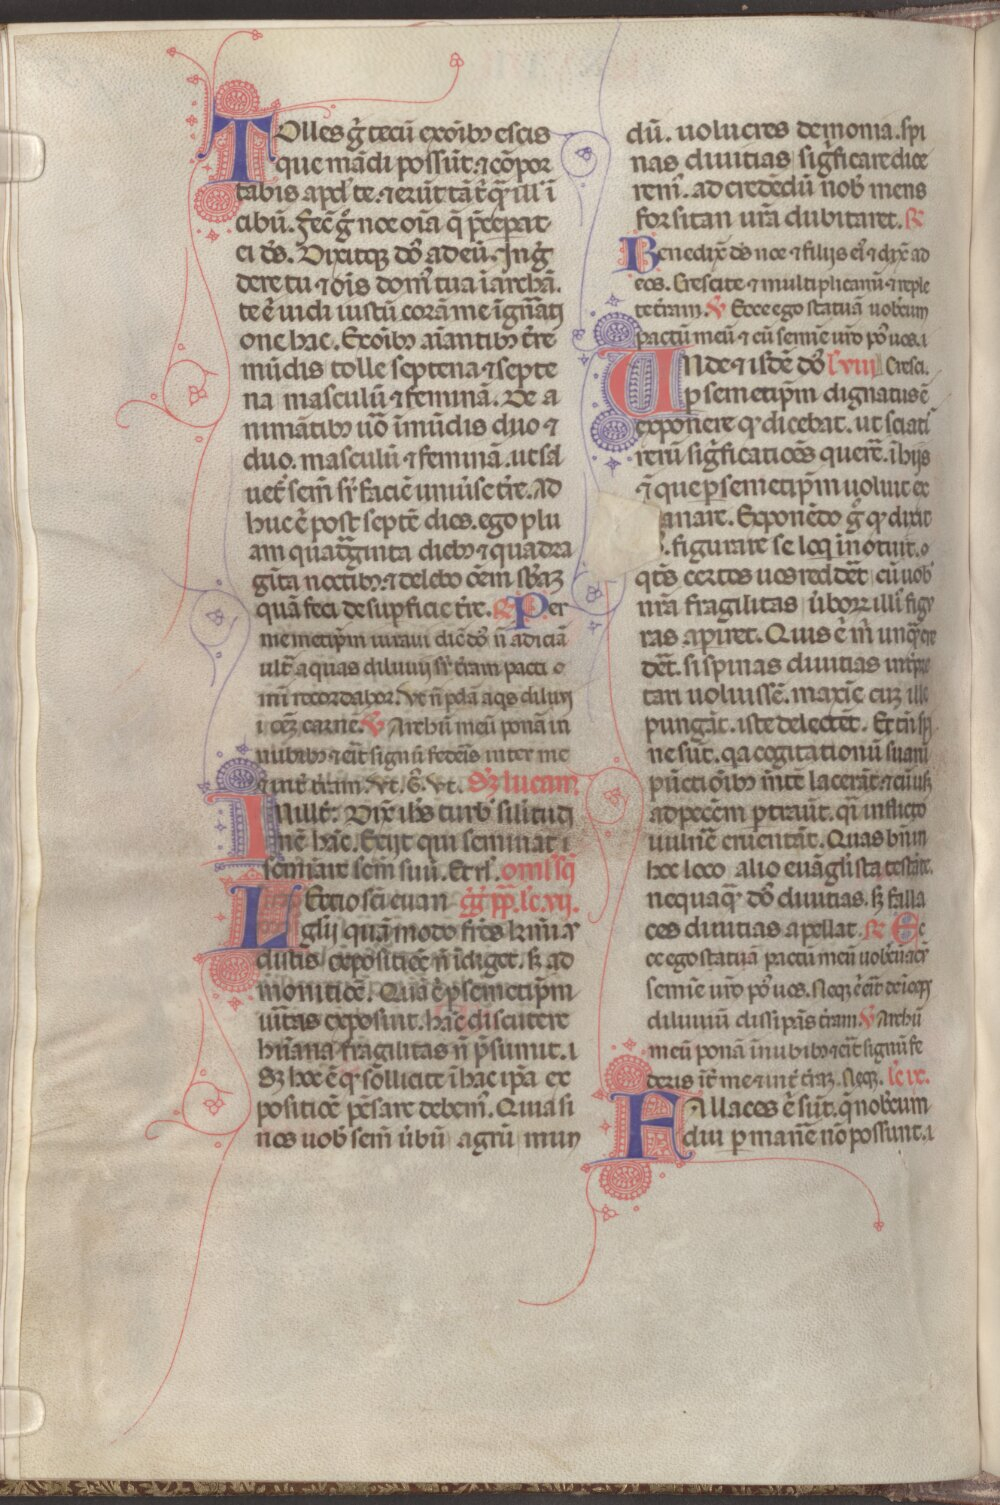 Tolles g̃ tecũ exoĩbꝫ escis
que mãdi possũt. ⁊ cõpor
tabis apd̾ te. ⁊ erũt tã t̾ q̃ ill̾ ĩ
cibũ. Fec̃ g̃ noe oĩa q̃ p̃cepat
ei dẽs. Dixitqꝫ dõs ad eũ. Ing̃
dere tu ⁊ oĩs dom̾ tua ĩ archã.
te ẽ uidi iustũ corã me ĩ gñati
one hac. Exoĩbꝫ aĩantibꝫ t̃re
mũdis tolle septena ⁊ septe
na masculũ ⁊ feminã. De a
nimãtibꝫ u̾o ĩmũdis duo ⁊
duo. masculũ ⁊ feminã. ut sal
uet̾ sem̃ sr̃ faciẽ uniũse t̃re. Ad
huc ẽ post septẽ dies. ego plu
am quadraginta diebꝫ ⁊ quadra
gĩta noctibꝫ. ⁊ delebo oẽm sb̾aꝫ
quã feci de sup̃ficie t̃re. ℟ Per
memetip̃m iuraui dic̃ dõs ñ adiciã
ult̾ aquas diluuij sr̃ t̃ram pacti o
mĩ recordabor. Ve ñ p̃dã aq̃s diluuij
ĩ oẽꝫ carnẽ. ℣ Archũ meũ ponã in
nubibꝫ ⁊ eĩt signũ fed̃eis inter me
⁊ int̾ t̃ram. Vt. G̃. Vt. Sꝫ lucam.
In ill̾ t̾. Dix̃ ihs̃ turb̾ silitudĩ
nẽ hãc. Exijt qui seminat
seminare sem̃ suũ. Et rl̾. omĩ sc̃i
Lectio sc̃i euan gg̾ pp̃. lc̃. vij.
glij quã modo fr̃es kr̃mi au
distis expositiõe ñ ĩdiget. sꝫ ad
monitiõe. Quã ẽ ꝑ semetip̃m
uĩtas exposuit. hãc discutere
hũana fragilitas ñ p̃sumit.
Sꝫ hoc ẽ q̾ sollicite ĩ hac ip̃a ex
positiõe pẽsare debem̾. Quia si
nos uob̾ sem̃ ũbũ agrũ mun
dũ. uolucres demonia. spi
nas diuitias sig̾ficare dice
rem̾. ad credẽdũ nob̾ mens
forsitan ur̃a dubitaret. ℟
Benedix̃ dẽs noe ⁊ filijs ei̾ ⁊ dix̃ ad
eos. Crescite ⁊ multiplicamĩ ⁊ reple
te t̃ram. ℣ Ecce ego statuã uob̾cum
pactũ meũ ⁊ cũ semĩe uro põ uos.
Vnde ⁊ isdẽ dõs lc̃ viij Cresci.
ꝑ semetip̃m dignatus ẽ
exponere q̾ dicebat. ut sciatĩ
rerũ sig̾ficatiões quere̾. ĩ hijs
⁊̃ que ꝑ semetip̃m noluit ex
anare. Exponẽdo g̃ q̾ dixit
. figurate se loq̃ ĩnotuit.
q̃t̃s certos uos redd̾et cũ uob̾
nr̃a fragilitas ũborꝫ illi̾ figu
ras apiret. Quis ẽ m̃ unq̃ cre
dẽt. si spinas diuitias int̾p̃
tari uoluissẽ. maxĩe cuꝫ ille
pungãt. iste delectẽt. Et tñ spi
ne sũt. qa cogitationũ suarũ
pũctiõibꝫ mẽtẽ lacerãt. ⁊ cũ usqꝫ
ad pecc̃m ꝑtraũt. q̃i inflicto
uulñe cruentãt. Quas bñ in
hoc loco alio euãglista testãte.
nequaq̃ dõs diuitias. sꝫ falla
ces diuitias apellat. ℟ Ec
ce ego statuã pactũ meũ uob̾cũ
semĩe uro põ uos. Neqꝫ ẽ eĩt deĩceps
diluuiũ dissipãs t̃ram. ℣ Archũ
meũ ponã ĩ nubibꝫ ⁊ eĩt signũ fe
deris ĩt̾ me ⁊ int̾ t̃raꝫ. Neqꝫ. lc̃ ix.
Fallaces ẽ sũt. q̾ nob̾cum
diu ꝑmanẽe nõ possunt.